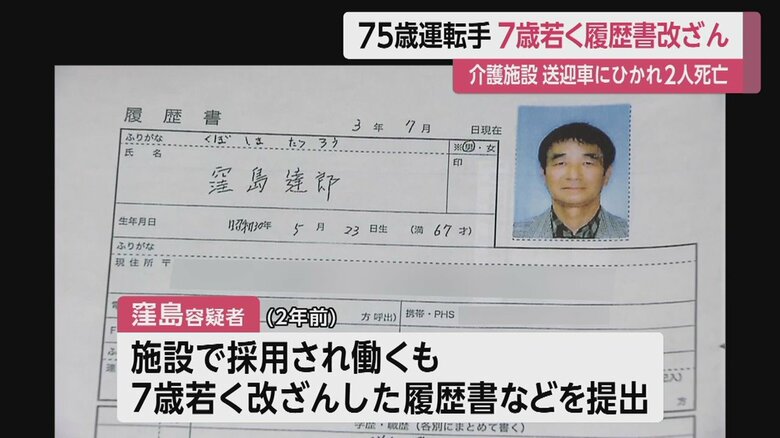 75歳運転手 7歳若く履歴書改ざん
介護施設 送迎車にひかれ2人死亡
履歴書
3年 7月 日現在
ふりがな くぼ しま たつ ろう
※男・女
氏名
印
窪島達郎
生年月日 昭和30年 5月 23日生 (満 67才)
ふりがな
現住所 〒
方呼出)
携帯・PHS
窪島容疑者 (2年前)
施設で採用され働くも
7歳若く改ざんした履歴書などを提出
学歴・職歴 (各別にまとめて書く)